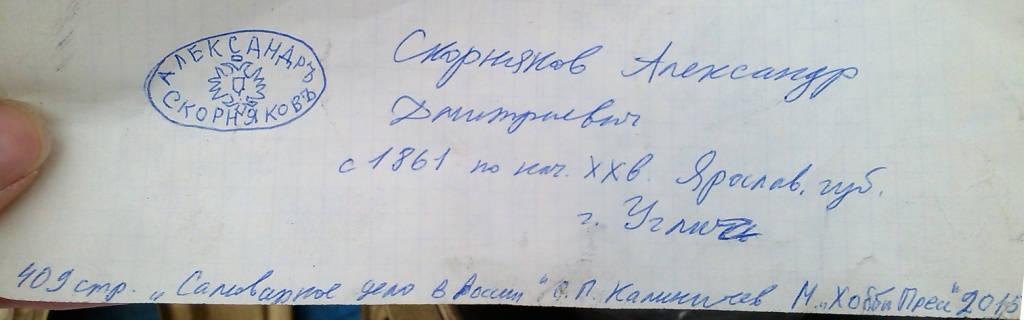 АЛЕКСАНДРЪ
СКОРНЯКОВЪ
Скорняков Александр
Дмитриевич
с 1861 по нач. XXв. Ярослав. губ.
г. Углич
409 стр. „Самоварное дело в России" П. Калиничев М. „Хобби Пресс" 2015